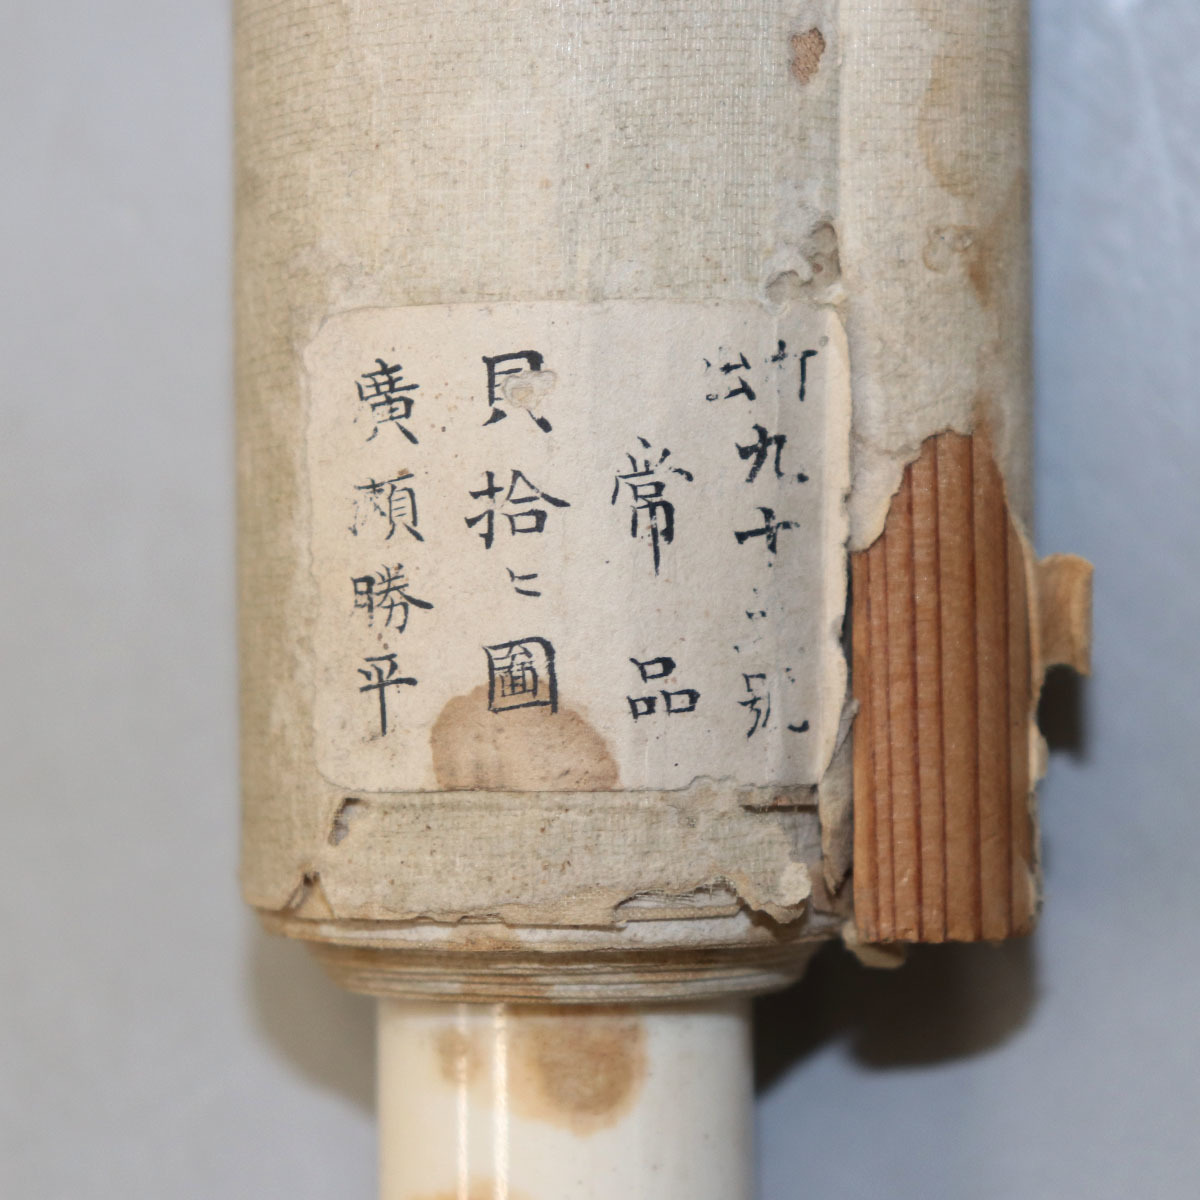 九十 號
常品
貝拾ヒ圖
廣瀬勝平